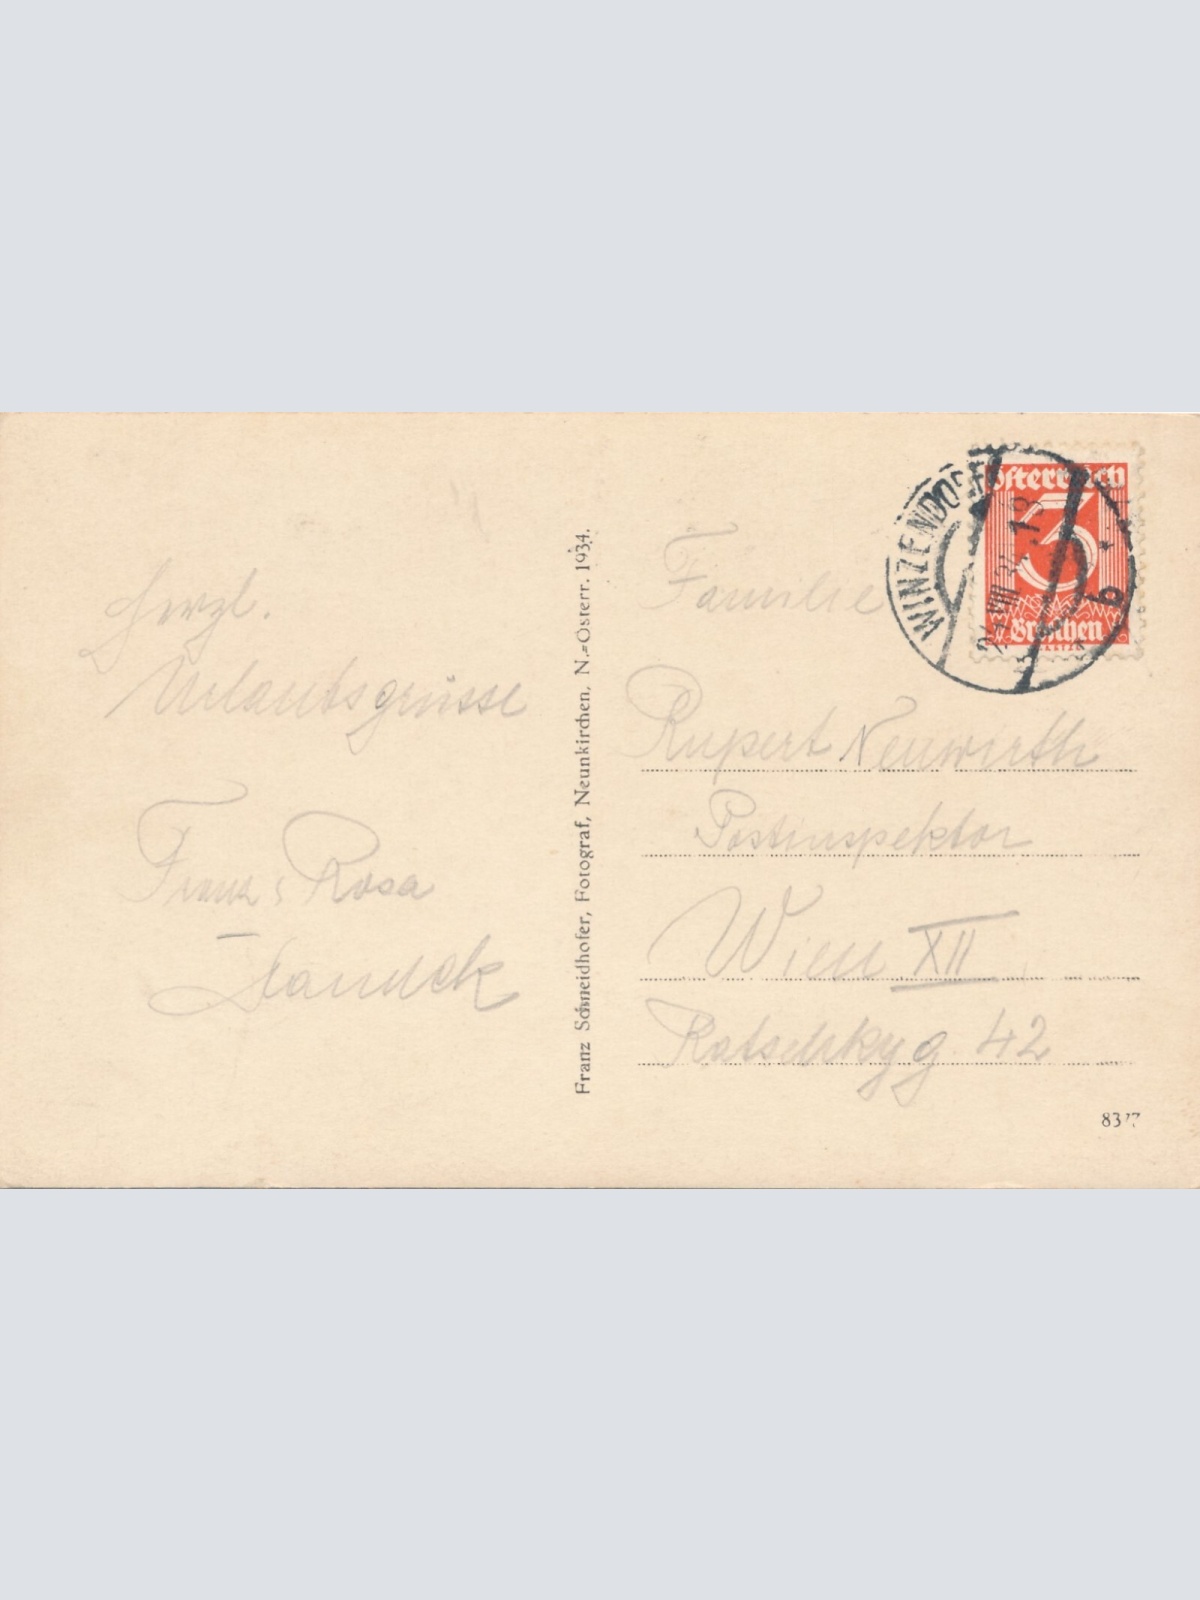 Herzl.
Urlaubsgrüsse
Franz, Rosa
Franz Schneidhofer, Fotograf, Neunkirchen, N.=Österr. 1934.
WINZENDORF
24.VIII 34.18
b
Österreich
3
Groschen
Familie
Rupert Neuwirth
Postinspektor
Wien XII
Ratschkyg. 42